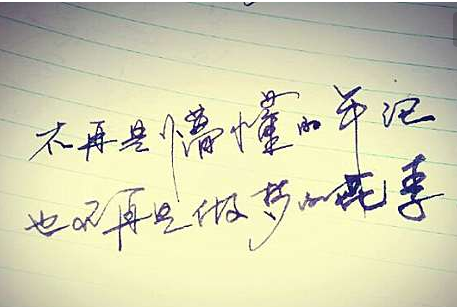 不再是懵懂的年纪
也不再是做梦的花季